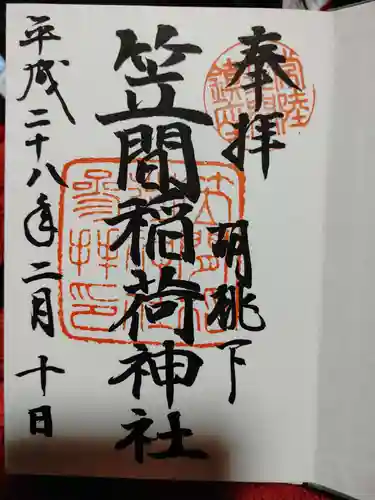 奉拝
胡桃下
笠間稲荷神社
平成二十八年二月十日